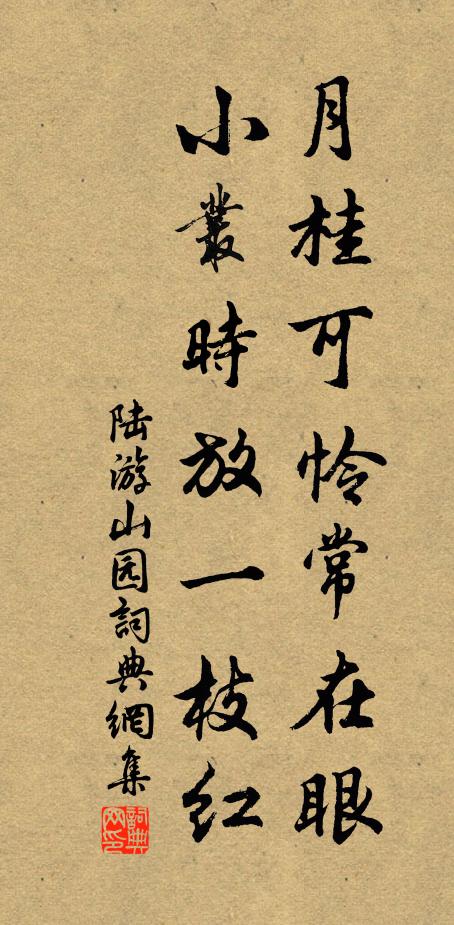 月桂可怜常在眼
小叢時放一枝红
陆游山园詞典網集
詞典網印